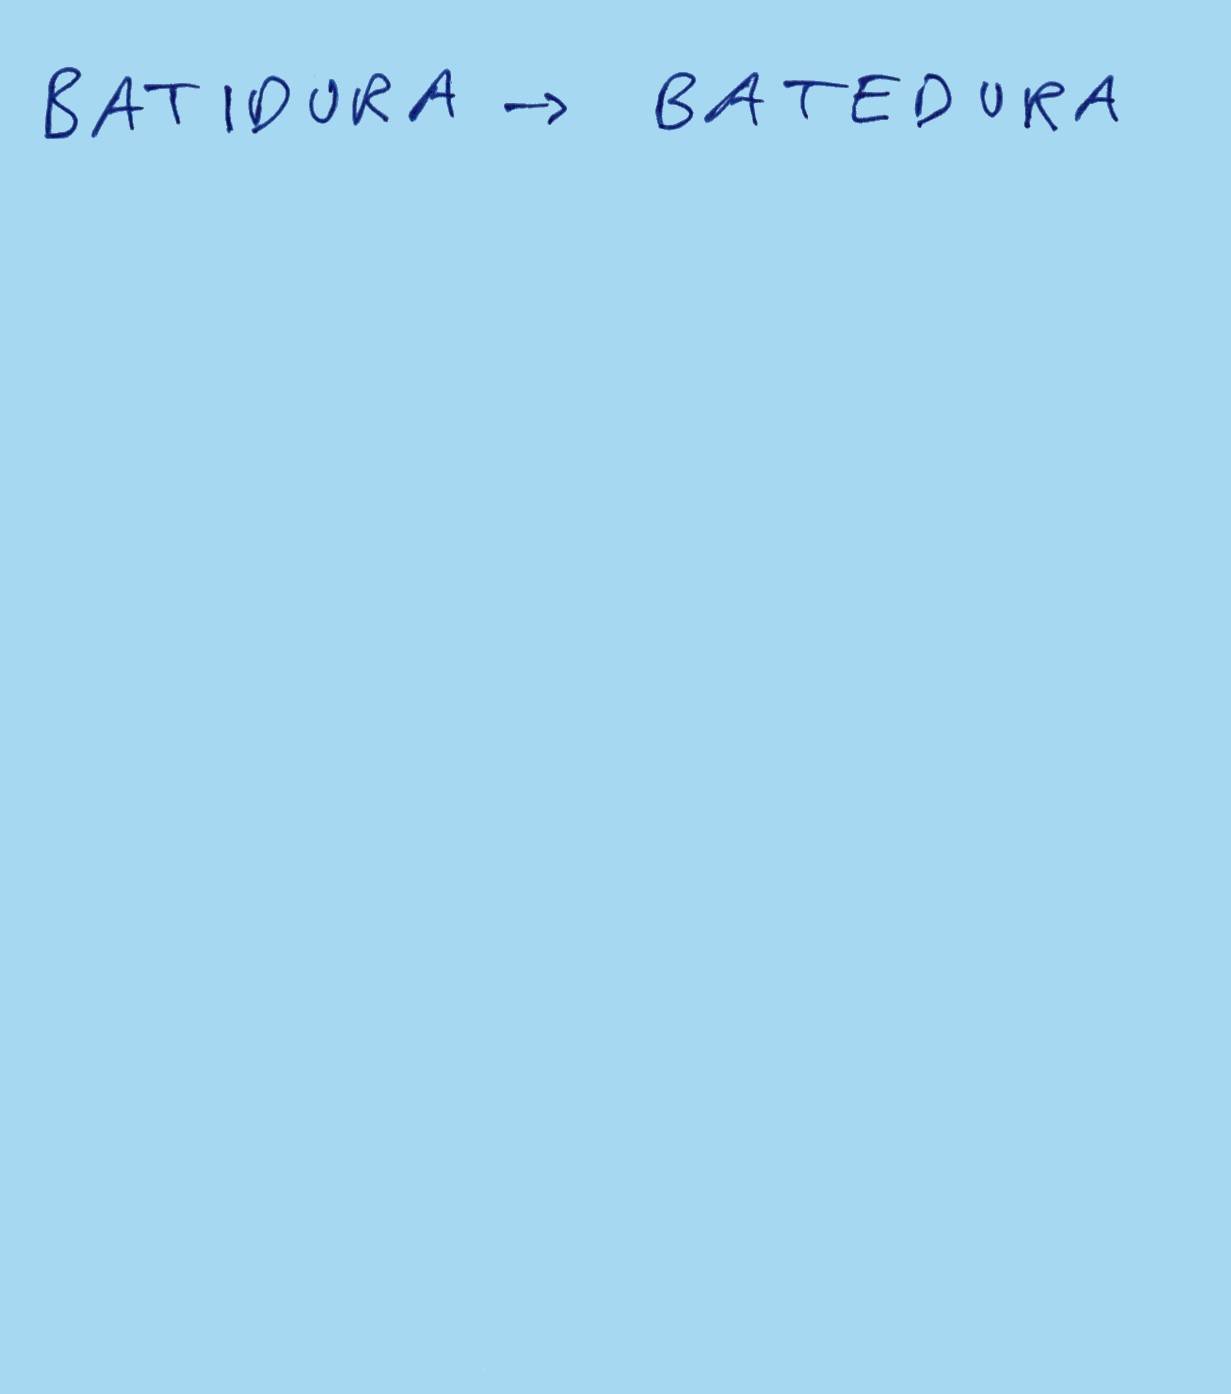 BATIDURA → BATEDURA